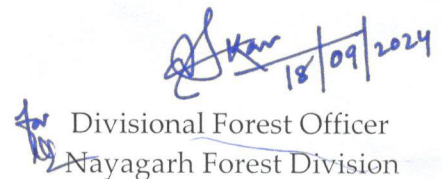 18/09/2024
for
Divisional Forest Officer
Nayagarh Forest Division